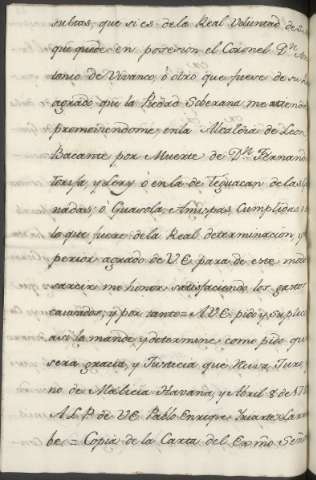 sultas, que si es de la Real Voluntad de S.
quede en posesion el Coronel Dn. An
tonio de Vivanco, ó otro que fuere de su
agrado que la Piedad Soberana me attenda
promoviendome en la Alcaldia de Leon
Bacante por Muerte de Dn. Fernand
Torija, y Lery ó en la de Teguacan de las
nadas; ó Guaxola, Amilpas, Cumplidas
lo que fuere de la Real determinacion, y
perior agrado de V.E. para de este modo
sarcir me honor satisfaciendo los gastos
causados, y por tanto = A V.E. pido y suplico
asi lo mande y determine como pido que
sera gracia, y Justicia que Juro
no de Malicia Havana, y Abril 8 de 17
A L P de V.E. Pablo Enrique Yriarte La
be = Copia de la Carta del Exmo. Señ